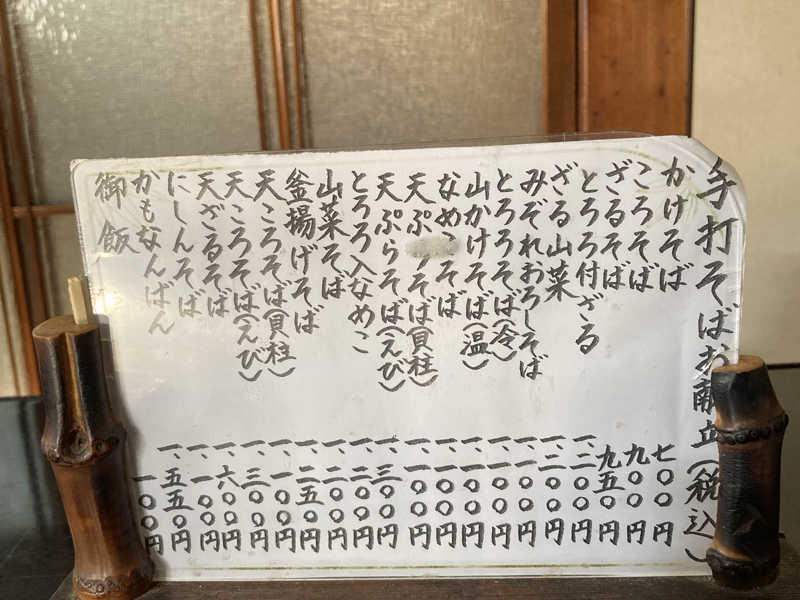 手打そばお献立(税込)
かけそば 七〇〇円
ころそば 九〇〇円
ざるそば 九五〇円
とろろ付ざる 一、二〇〇円
ざる山菜 一、二〇〇円
みぞれおろしそば 一、一〇〇円
とろろそば(冷) 一、一〇〇円
山かけそば(温) 一、一〇〇円
なめこそば 一、一〇〇円
天ぷ そば(貝柱) 一、一〇〇円
天ぷらそば(えび) 一、三〇〇円
とろろ入なめこ 一、二〇〇円
山菜そば 一、二〇〇円
釜揚げそば 一、二五〇円
天ころそば(貝柱) 一、一〇〇円
天ころそば(えび) 一、三〇〇円
天ざるそば 一、六〇〇円
にしんそば 一、一〇〇円
かもなんばん 一、五五〇円
御飯 一〇〇円